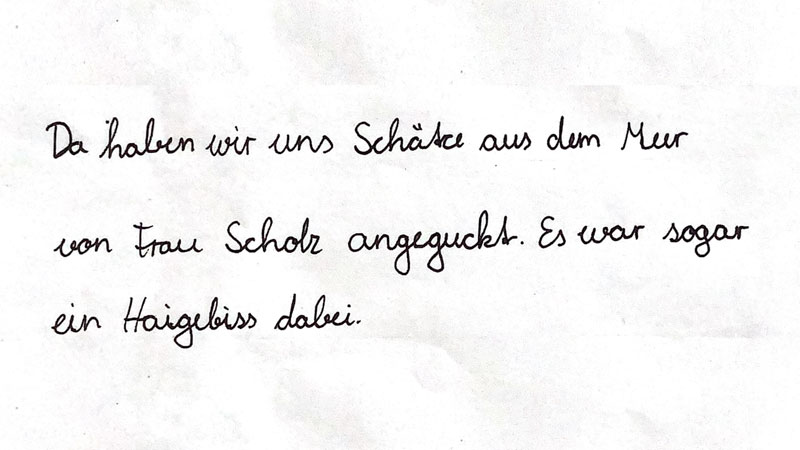 Da haben wir uns Schätze aus dem Meer
von Frau Scholz angeguckt. Es war sogar
ein Haigebiss dabei.